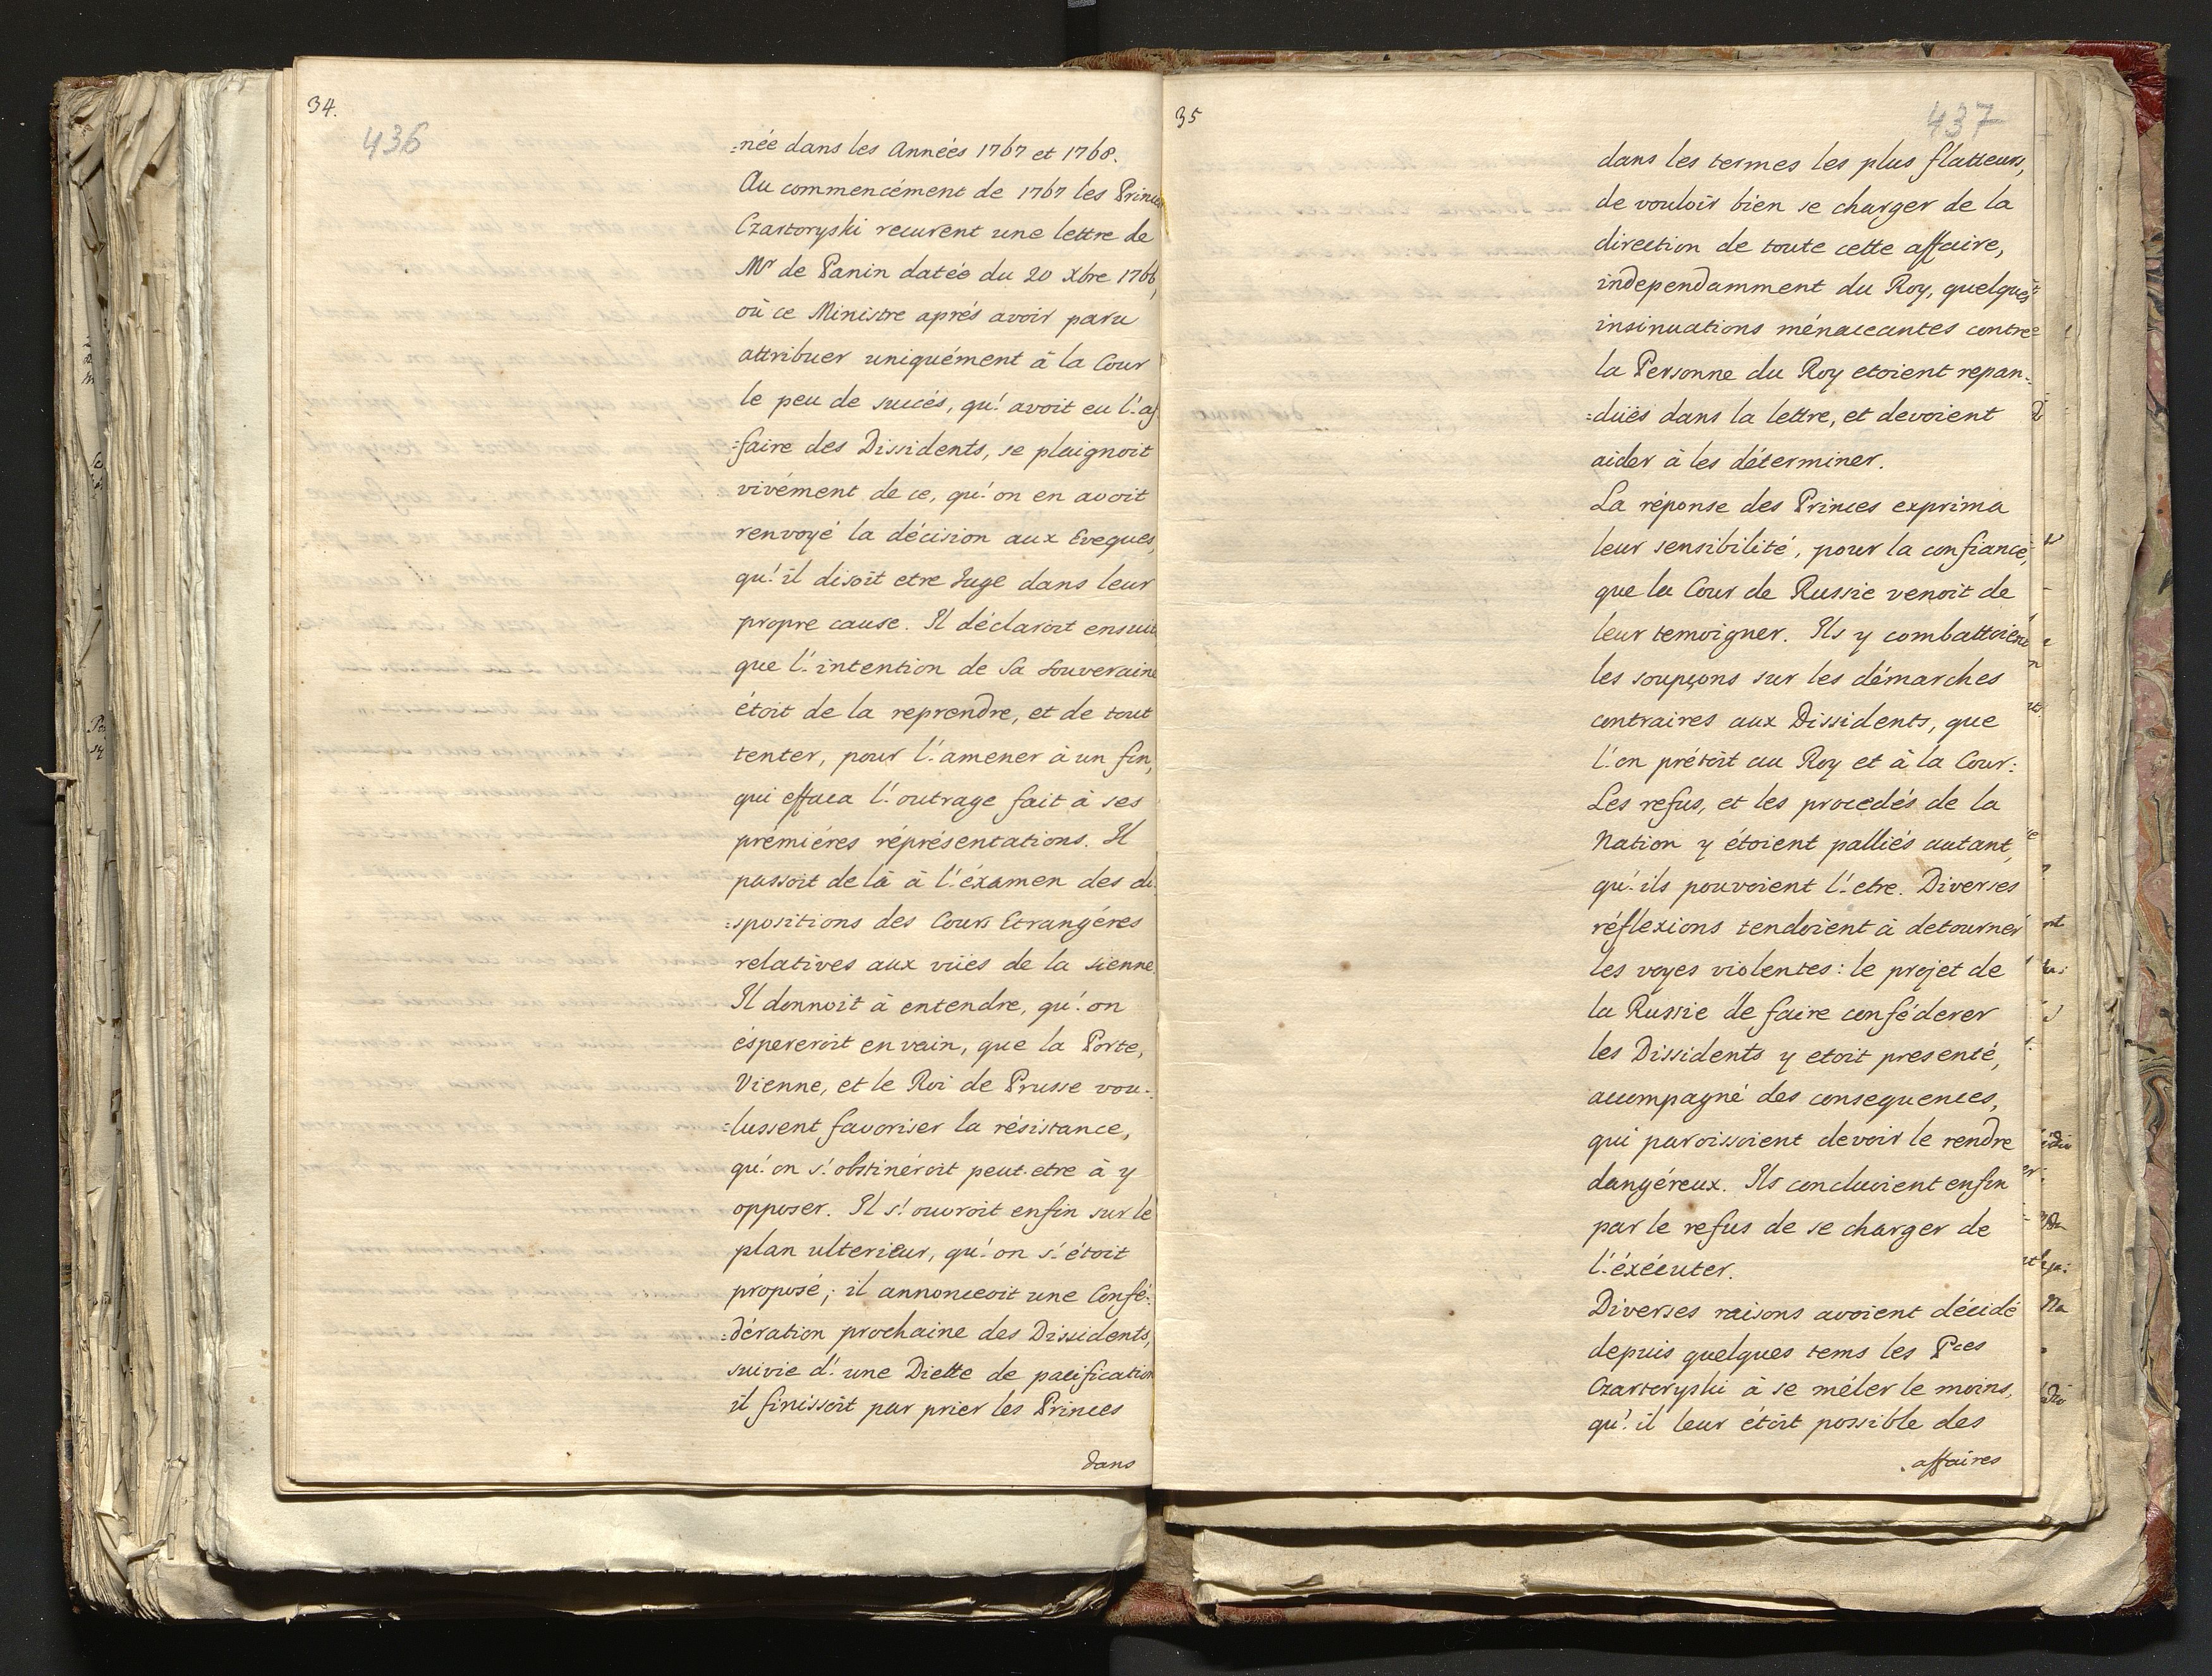 34.
436
=née dans les Années 1767 et 1768.
Au commencément de 1767 les Princes
Czartoryski recurent une lettre de
Mr de Panin datée du 20 Xbre 1766,
où ce Ministre aprés avoir paru
attribuer uniquément à la Cour
le peu de succés, qu'avoit eu l'af
=faire des Dissidents, se plaignoit
vivément de ce, qu'on en avoit
renvoyé la décision aux Eveques,
qu'il disoit etre Juge dans leur
propre cause. Il déclaroit ensuite
que l'intention de Sa Souveraine
étoit de la reprendre, et de tout
tenter, pour l'amener à un fin,
qui effaca l'outrage fait à ses
prémiéres réprésentations. Il
passoit de là à l'éxamen des di
=spositions des Cours Etrangéres
relatives aux vüés de la sienne.
Il donnoit à entendre, qu'on
éspereroit en vain, que la Porte,
Vienne, et le Roi de Prusse vou=
=lussent favoriser la résistance,
qu'on s'obstinéroit peut-etre à y
opposer. Il s'ouvroit enfin sur le
plan ulterieur, qu'on s'étoit
proposé; il annonceoit une Confé=
=dération prochaine des Dissidents,
suivie d'une Diette de pacification
il finissoit par prier les Princes
dans
35
437
dans les termes les plus flatteurs,
de vouloir bien se charger de la
direction de toute cette affaire,
independamment du Roy, quelques
insinuations ménaceantes contre
la Personne du Roy etoient repan=
=düés dans la lettre, et devoient
aider à les déterminer.
La réponse des Princes exprima
leur sensibilité, pour la confiance,
que la Cour de Russie venoit de
leur temoigner. Ils y combattoient
les soupçons sur les démarches
contraires aux Dissidents, que
l'on prétoit au Roy et à la Cour:
Les refus, et les procedés de la
Nation y étoient palliés autant,
qu'ils pouvoient l'etre. Diverses
réflexions tendoient à detourner
les voyes violentes: le projet de
la Russie de faire conféderer
les Dissidents y etoit presenté,
accompagné des consequences,
qui paroissoient devoir le rendre
dangéreux. Ils concluoient enfin
par le refus de se charger de
l'éxécuter.
Diverses raisons avoient décidé
depuis quelques tems les Pces
Czartoryski à se méler le moins,
qu'il leur étoit possible des
affaires